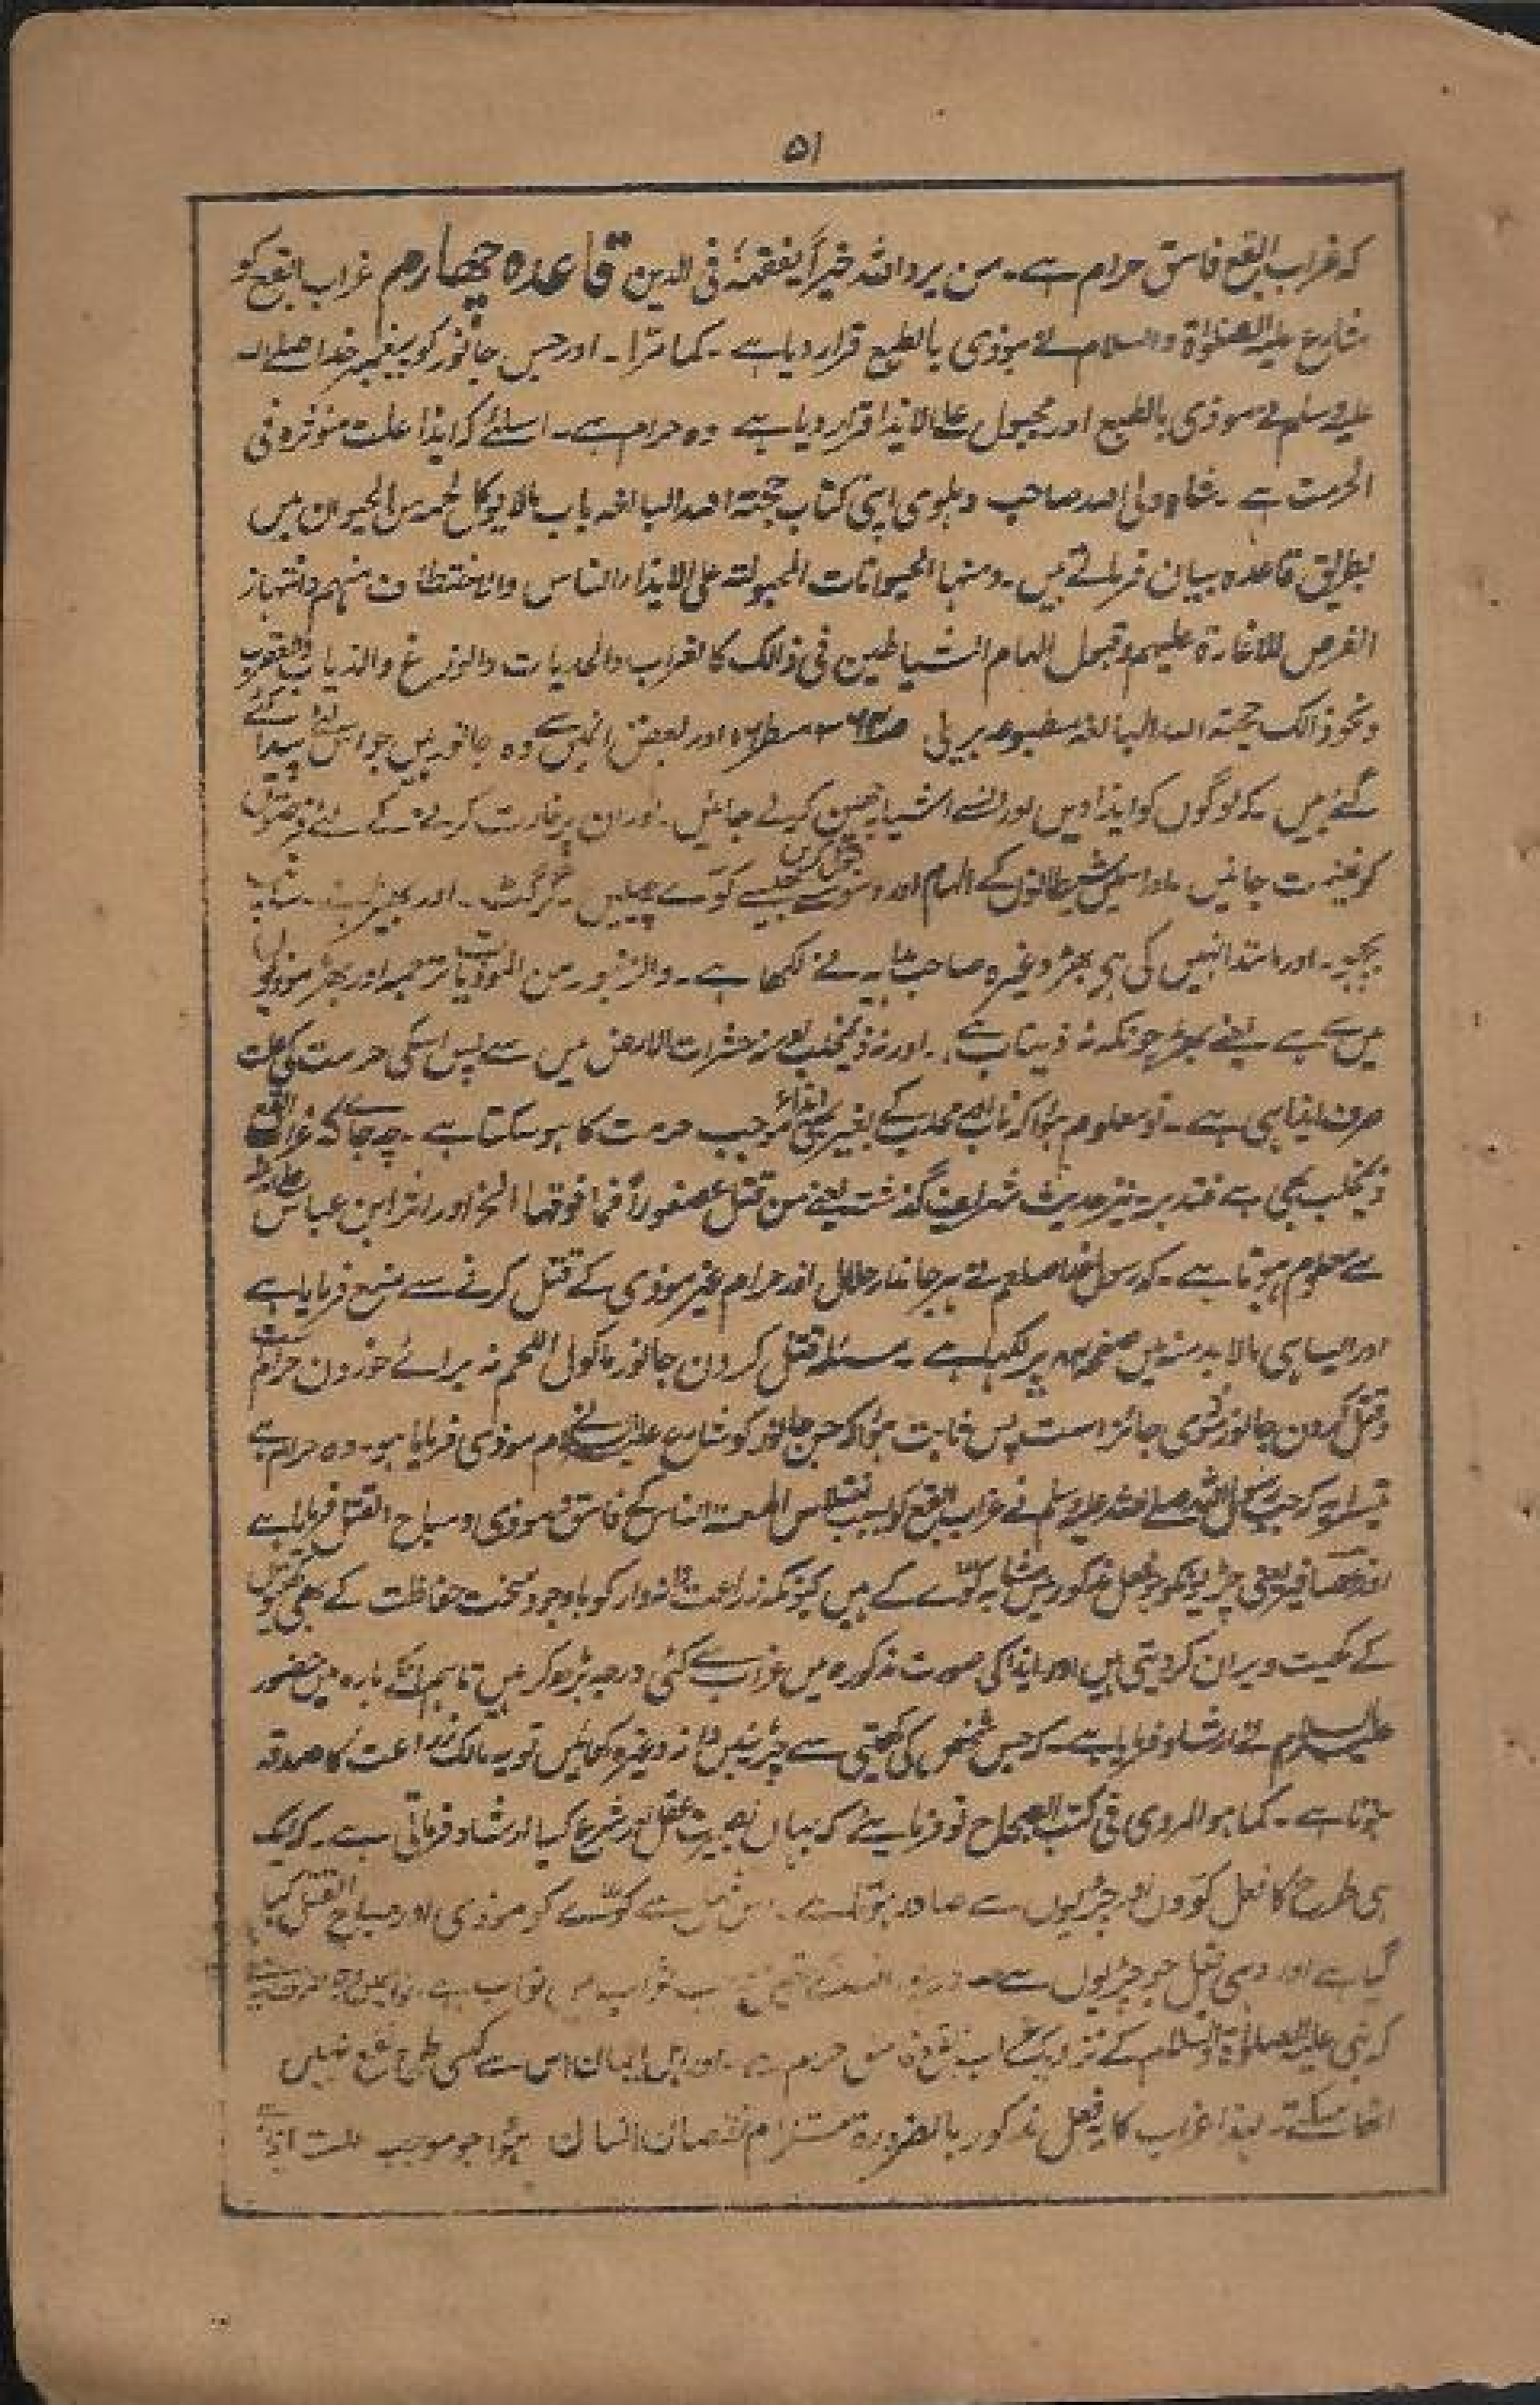 ۵۱
کہ غراب ابقع فاسق حرام ہے۔ من یرد اللہ خیراً یفقہہ فی الدین قاعدہ چہارم غراب ابقع کو
شارع علیہ الصلوٰۃ والسلام نے موذی بالطبع قرار دیا ہے۔ کما مرّا۔ اور جس جانور کو پیغمبر خدا صلے اللہ
علیہ وسلم نے موذی بالطبع اور مجبول علے الایذا قرار دیا ہے وہ حرام ہے۔ اسلئے کہ ایذا علت مؤثرہ فی
الحرمت ہے۔ شاہ ولی اللہ صاحب دہلوی اپنی کتاب حجتہ اللہ البالغہ باب مالا یوکل لحمہ من الحیوان میں
بطریق قاعدہ بیان فرماتے ہیں۔ ومنہا الحیوانات المجبولتہ علی الایذاء الناس والاختطاف منہم وانتہاز
الفرص للاغارۃ علیہم وقبول الہام الشیاطین فی ذالک کالغراب والحدیات والوزغ والذباب والعقرب
ونحو ذالک حجتہ اللہ البالغہ مطبوعہ بریلی اور بعض انمیں سے وہ جانور ہیں جو اس لئے پیدا کئے
گئے ہیں۔ کہ لوگوں کو ایذا دیں اور انسے اشیاء چھین کر لے جائیں۔ اور ان پر غارت کرنے کے لئے
کو غنیمت جانیں۔ اور اسمیں شیطانوں کے الہام اور وسوسے قبول کریں جیسے کوّے چیلیں گرگٹ۔ اور
بچھو۔ اور مانند انہیں کی ہو بھڑ وغیرہ صاحب ہدایہ نے لکھا ہے۔ والزنبور من الموذیات ترجمہ اور بھڑ موذیوں
میں سے ہے یعنے بھڑ چونکہ نہ ذیناب ہے۔ اور نہ ذیمخلب اور نہ حشرات الارض میں سے پس اسکی حرمت کی علت
صرف ایذا ہی ہے۔ تو معلوم ہؤا کہ ناب اور مخلب کے بغیر بھی ایذاء موجب حرمت کا ہو سکتا ہے۔ چہ جائے کہ غراب ابقع
ذیمخلب بھی ہے فتدبر۔ نیز حدیث شریف گذشتہ یعنے من قتل عصفوراً فما فوقہا الخ اور اثر ابن عباس
سے معلوم ہوتا ہے۔ کہ رسول خدا صلعم نے ہر جاندار حلال اور حرام غیر موذی کے قتل کرنے سے منع فرمایا ہے
اور ایسا ہی مالا بد منہ میں صفحہ پر لکھا ہے۔ مسئلہ قتل کردن جانور ماکول اللحم نہ برائے خوردن حرام است
وقتل کردن جانور موذی جائز است پس ثابت ہؤا کہ جس جانور کو شارع علیہ السلام نے موذی فرمایا ہو۔ وہ حرام ہے
تیسرا یہ کہ جب رسول اللہ صلے اللہ علیہ وسلم نے غراب ابقع کو بسبب فاسق موذی و مباح القتل فرمایا ہے
اور عصافیر یعنی چڑیوں کہ بفعل مذکور میں مشابہ کوّے کے ہیں کیونکہ زراعت دانہ دار کو باوجود سخت حفاظت کے بھی
کے کھیت ویران کر دیتی ہیں اور ایذا کی صورت مذکورہ میں غراب سے کئی درجہ بڑھ کر ہیں تاہم انکے بارہ میں حضور
علیہ السلام نے ارشاد فرمایا ہے۔ کہ جس شخص کی کھیتی سے چڑیئیں دانہ وغیرہ کھائیں تو یہ مالک زراعت کا صدقہ
ہوتا ہے۔ کما ہو المروی فی کتب الصحاح تو فرمایئے کہ یہاں عقل اور شرع کیا ارشاد فرماتی ہے۔ کہ ایک
ہی طرح کا فعل کوّوں اور چڑیوں سے صادر ہوتا ہے۔ سے کوّے کو موذی اور مباح القتل کہا
گیا ہے اور وہی فعل جو چڑیوں سے
کہ نبی علیہ الصلوٰۃ والسلام کے نزدیک غراب ابقع فاسق حرام ہے۔ اور اہل ایمان اس سے کسی طرح نفع نہیں
اٹھا سکتے۔ لہذا غراب کا یہ فعل مذکور بالضرورۃ مستلزم نقصان انسان ہؤا جو موجب علت ایذا ہے